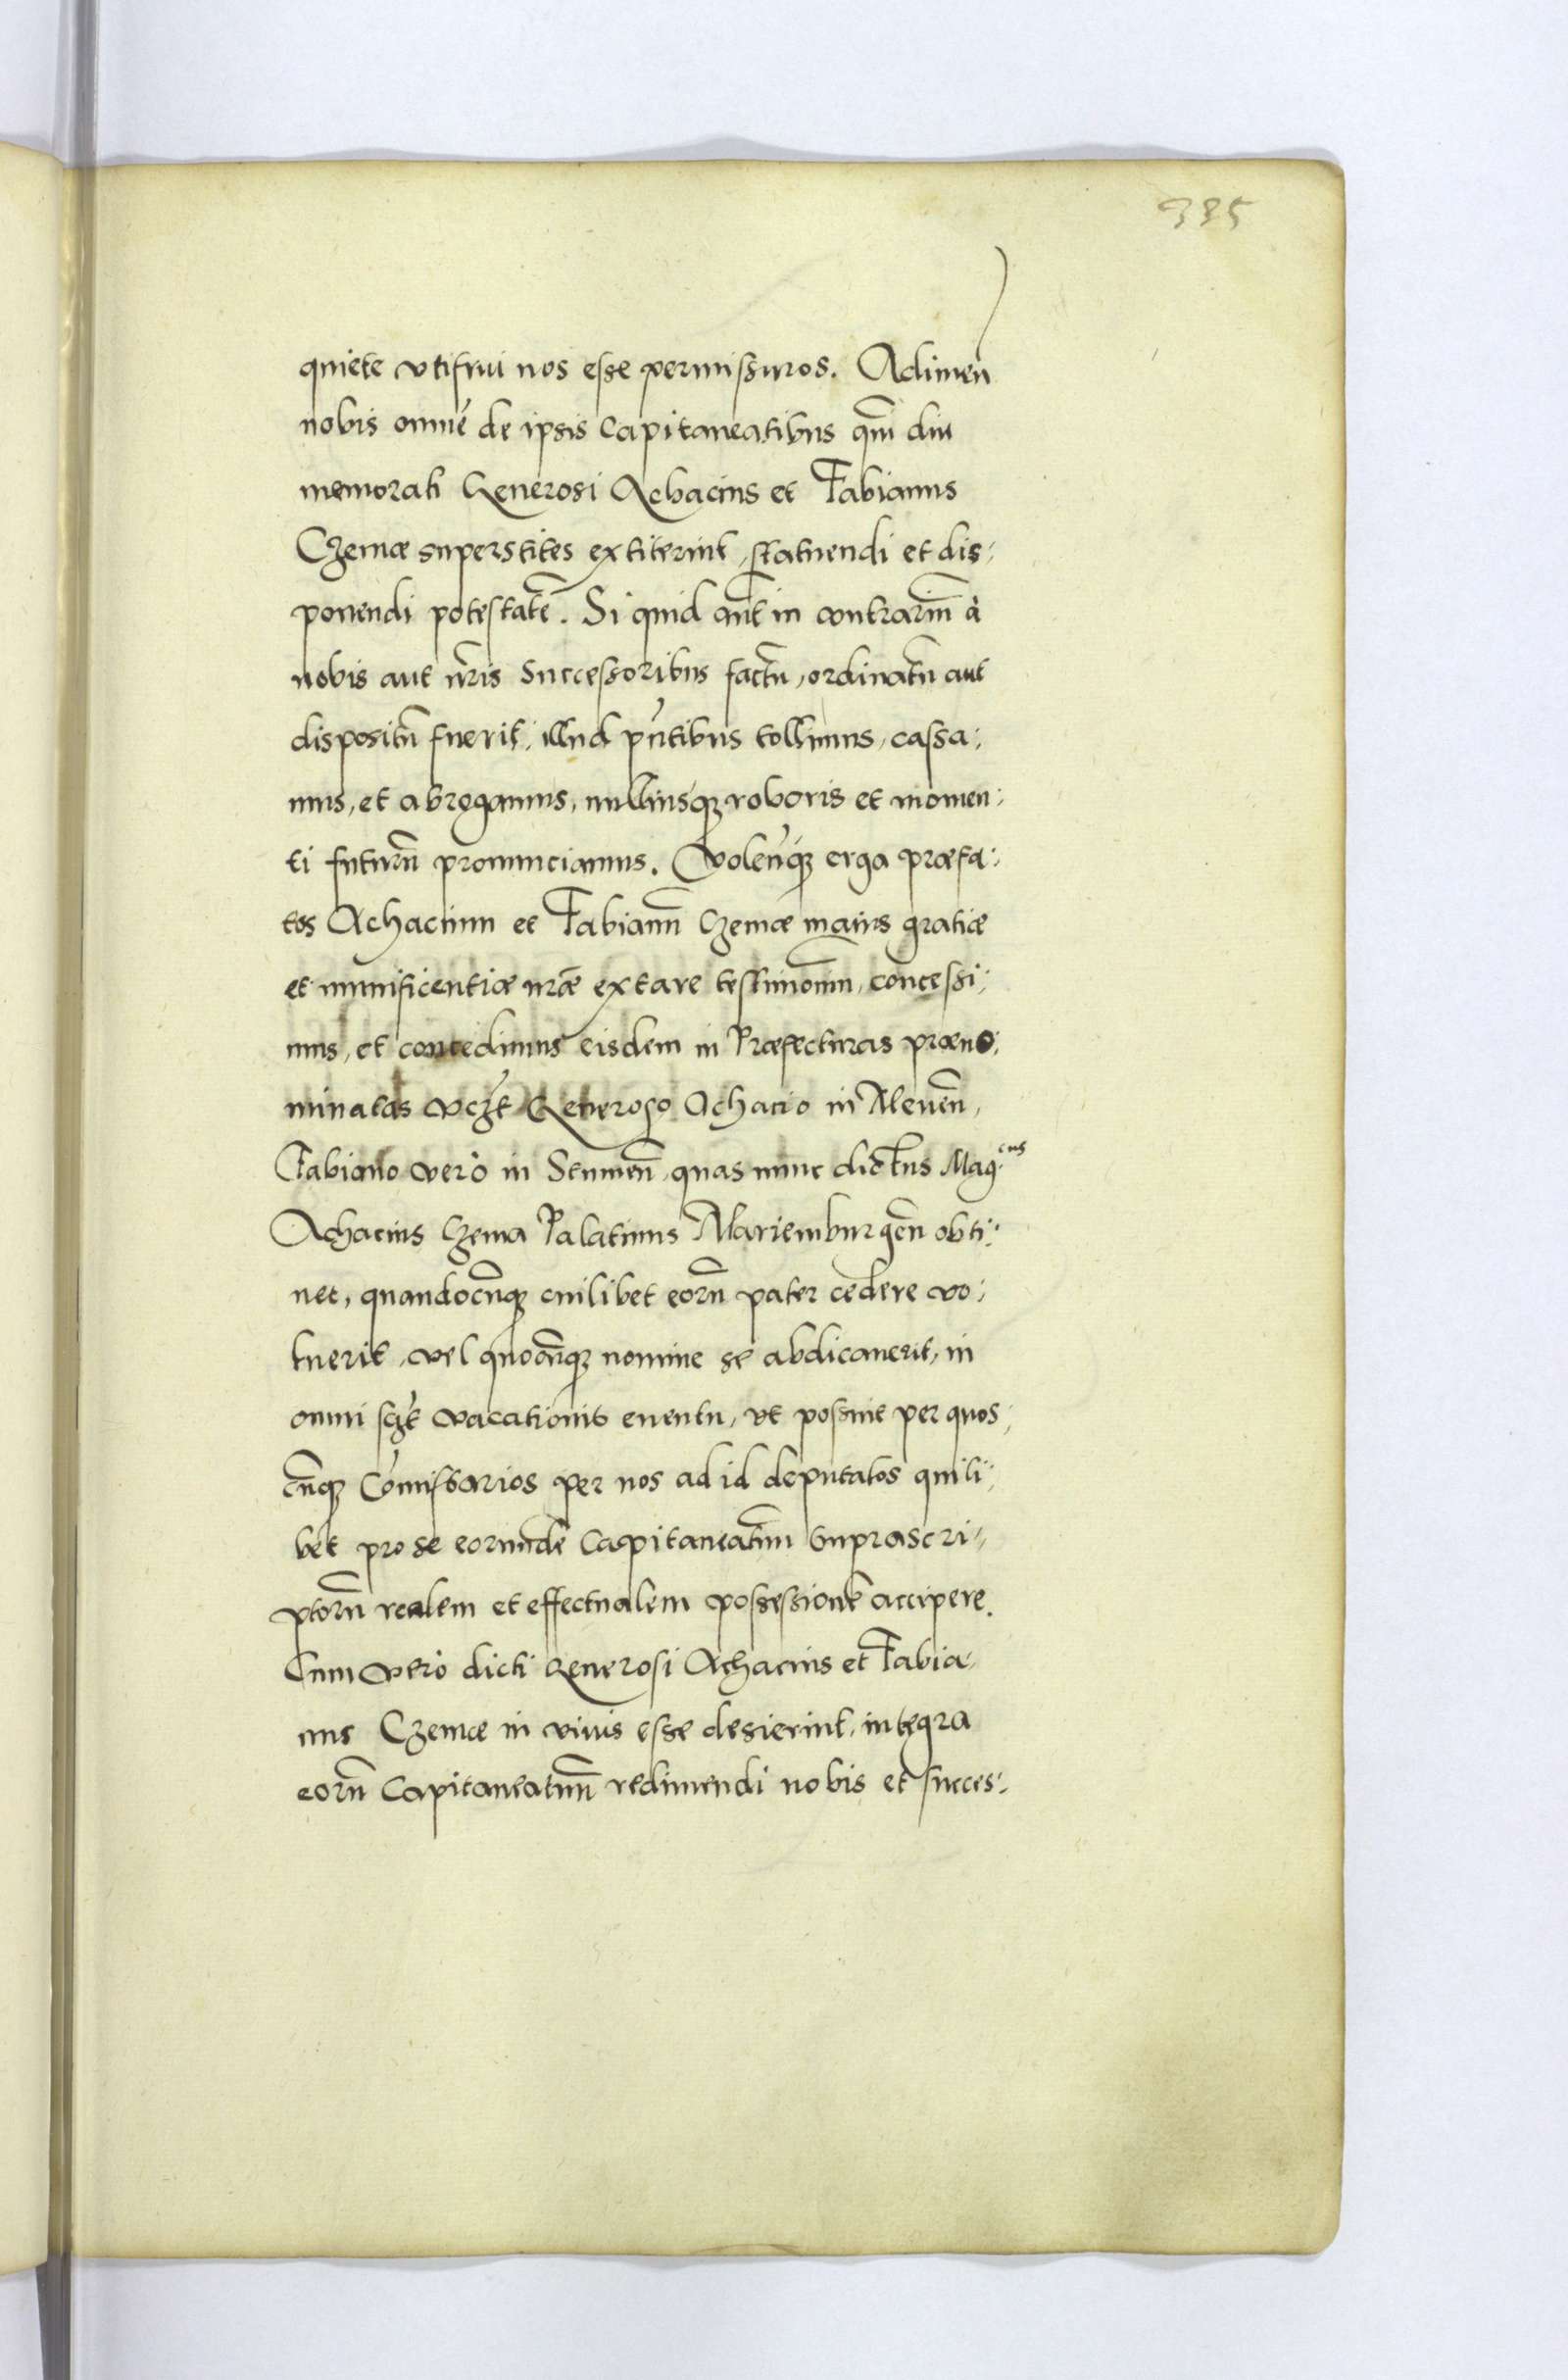 335
quiete vtifrui nos esse permissuros. Adimen
nobis omnē de ipsis Capitaneatibus qm̄ diu
memorati Generosi Achacius et Fabianus
Czemæ superstites extiterint, statuendi et dis:
ponendi potestatē. Si quid aut̄ in contrariū à
nobis aut nr̄is Successoribus factū, ordinatū aut
dispositū fuerit: illud pn̄tibus tollimus, cassa:
mus, et abrogamus, nulliusq; roboris et momen:
ti futurū pronunciamus. Volen̄q; erga præfa:
tos Achacium et Fabianū Czemæ maius gratiæ
et munificentiæ nr̄æ extare testimoniū, concessi:
mus, et concedimus eisdem in Præfecturas præno:
minatas vczt Generoso Achacio in Meuen̄,
Fabiano verò in Stumen̄, quas nunc dictus Mag.cus
Achacius Czema Palatinus Mariemburgen̄ obti:
net, quandocūq; cuilibet eorū pater cedere vo:
luerit, vel quocūq; nomine se abdicauerit, in
omni sczt vacationis euentu, vt possint per quos:
cūq; Com̄issarios per nos ad id deputatos quili:
bet pro se eorundē Capitaneatuum suprascri:
ptorū realem et effectualem possessionē accipere.
Cum verò dicti Generosi Achacius et Fabia:
nus Czemæ in viuis esse desierint, integra
eorū Capitaneatuū redimendi nobis et succes: